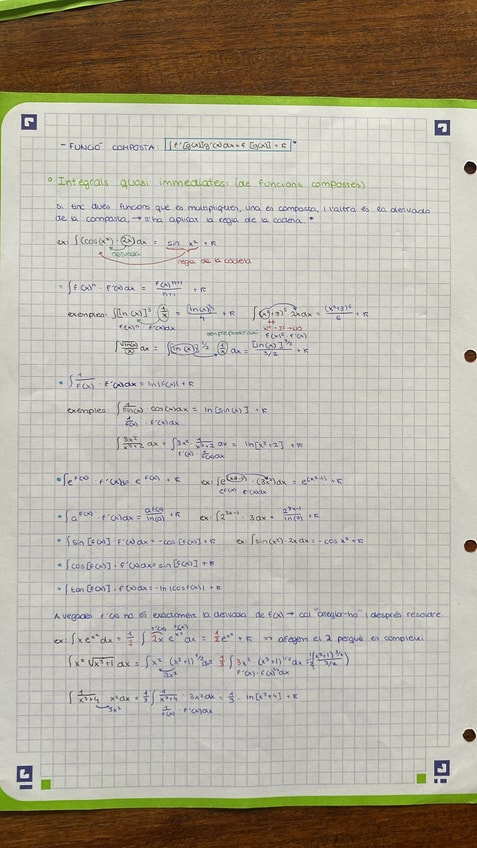 - FUNCIÓ COMPOSTA: ∫f'[g(x)]g'(x)dx = f[g(x)] + K *
Integrals quasi immediates: (de funcions compostes)
Si tinc dues funcions que es multipliquen, una és composta, i l'altra és la derivada
de la composta, → s'ha aplicat la regla de la cadena. *
ex: ∫(cos(x²) · 2x)dx = sin x² + K
derivada
regla de la cadena
∫f(x)ⁿ · f'(x)dx = f(x)ⁿ⁺¹/n+1 + K
exemples: ∫[ln(x)]³ · (1/x) = [ln(x)]⁴/4 + K ∫(x²+3)⁵ 2x dx = (x²+3)⁶/6 + K
f(x)ⁿ f'(x)dx
∫√ln(x)/x dx = ∫[ln(x)]^1/2 · (1/x) dx = [ln(x)]^3/2/3/2 + K
• ∫1/f(x) · f'(x)dx = ln|f(x)| + K
exemples: ∫1/sin(x) cos(x)dx = ln[sin(x)] + K
1/f(x) · f'(x)dx
∫3x²/x³+2 dx = ∫3x² · 1/x³+2 dx = ln[x³+2] + K
f'(x) 1/f(x)dx
• ∫e^f(x) · f'(x)dx = e^f(x) + K ex: ∫e^(x³-1) · (3x²)dx = e^(x³-1) + K
e^f(x) f'(x)dx
• ∫a^f(x) · f'(x)dx = a^f(x)/ln(a) + K ex: ∫2^3x-1 · 3dx = 2^3x-1/ln(2) + K
• ∫sin[f(x)] · f'(x)dx = -cos[f(x)] + K ex: ∫sin(x²) · 2x dx = -cos x² + K
• ∫cos[f(x)] · f'(x)dx = sin[f(x)] + K
• ∫tan[f(x)] · f'(x)dx = -ln|cos f(x)| + K
A vegades f'(x) no és exactament la derivada de f(x) → cal "arreglar-ho" i després resoldre
ex: ∫x e^x² dx = 1/2 ∫2x e^x² dx = 1/2 e^x² + K
∫x² √x³+1 dx = ∫x² · (x³+1)^1/2 dx = 1/3 ∫3x² · (x³+1)^1/2 dx = 1/3 ((x³+1)^3/2/3/2)
3x²
∫1/x³+4 x² dx = 1/3 ∫1/x³+4 · 3x² dx = 1/3 · ln[x³+4] + K
3x² 1/f(x) · f'(x)dx